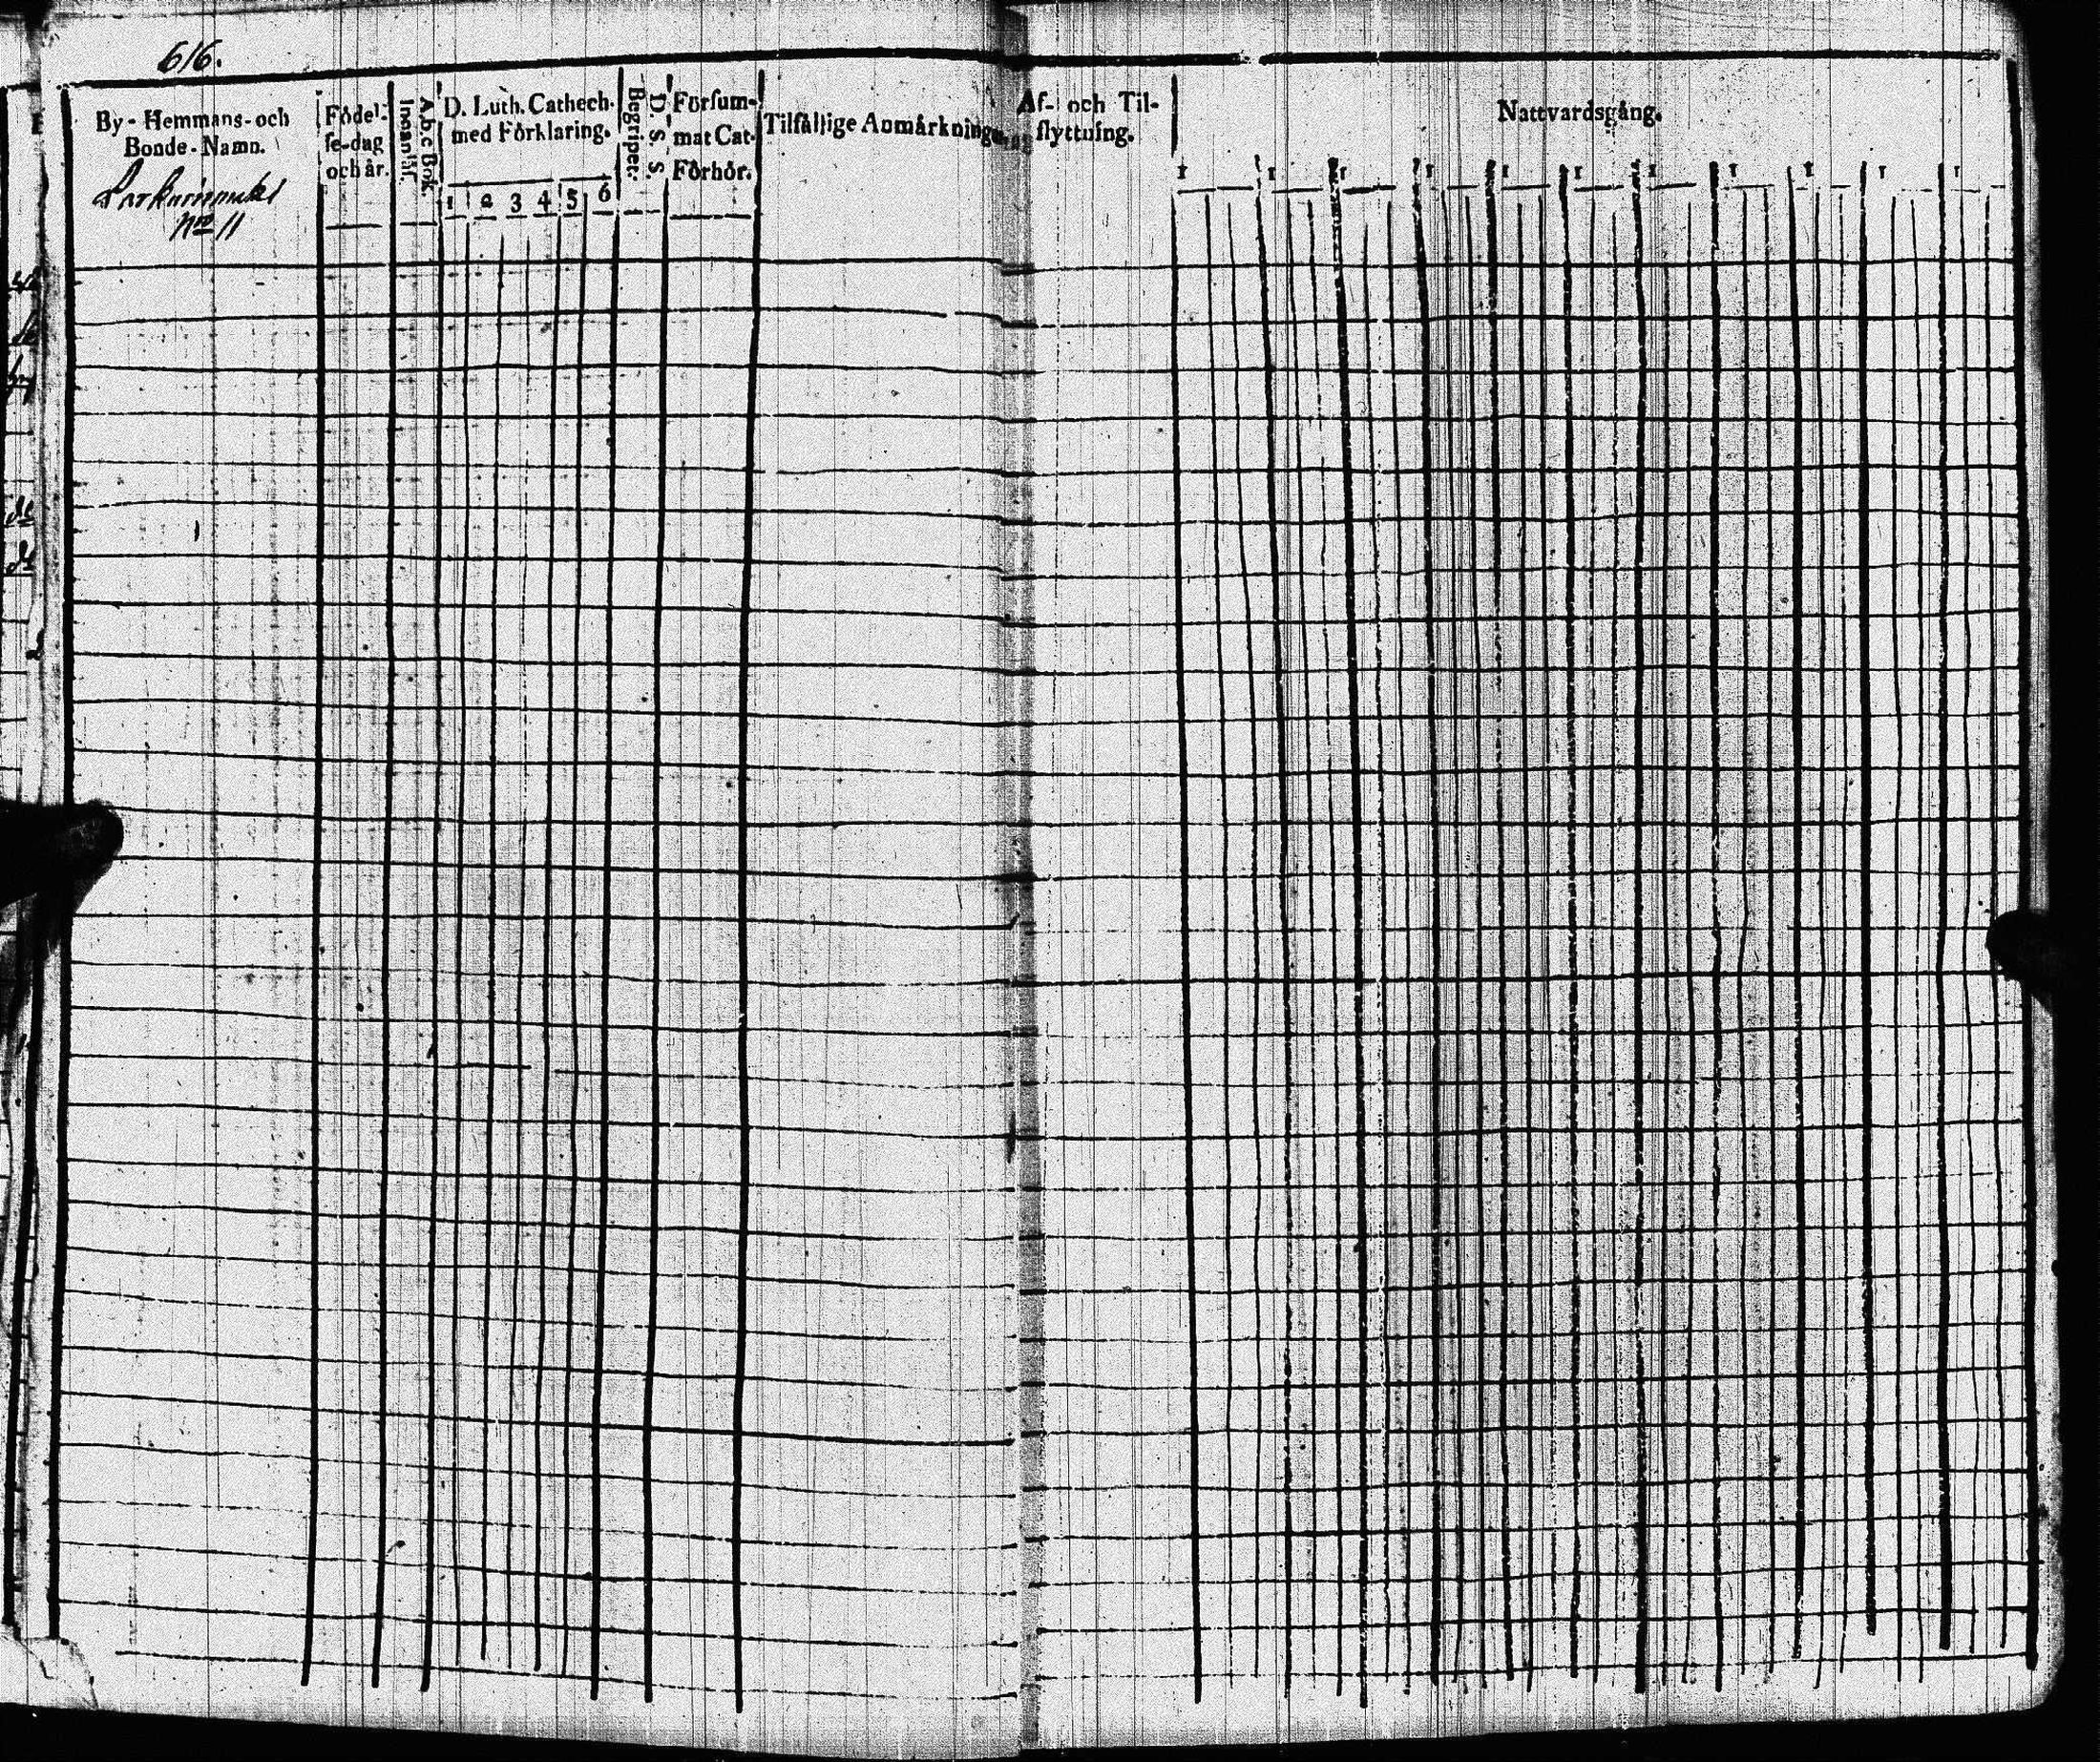 616.
By-Hemmans-och
Bonde-Namn.
No 11
Födel-
se-dag
och år.
A b c Bok.
Innanläs.
D. Luth. Cathech.
med Förklaring.
1 2 3 4 5 6
D. S. S.
Begripet.
Försum-
mat Cat.
Förhör.
Tilfällige Anmärkningar
Af- och Til-
flyttning.
Nattvardsgång.
1 1 1 1 1 1 1 1 1 1 1